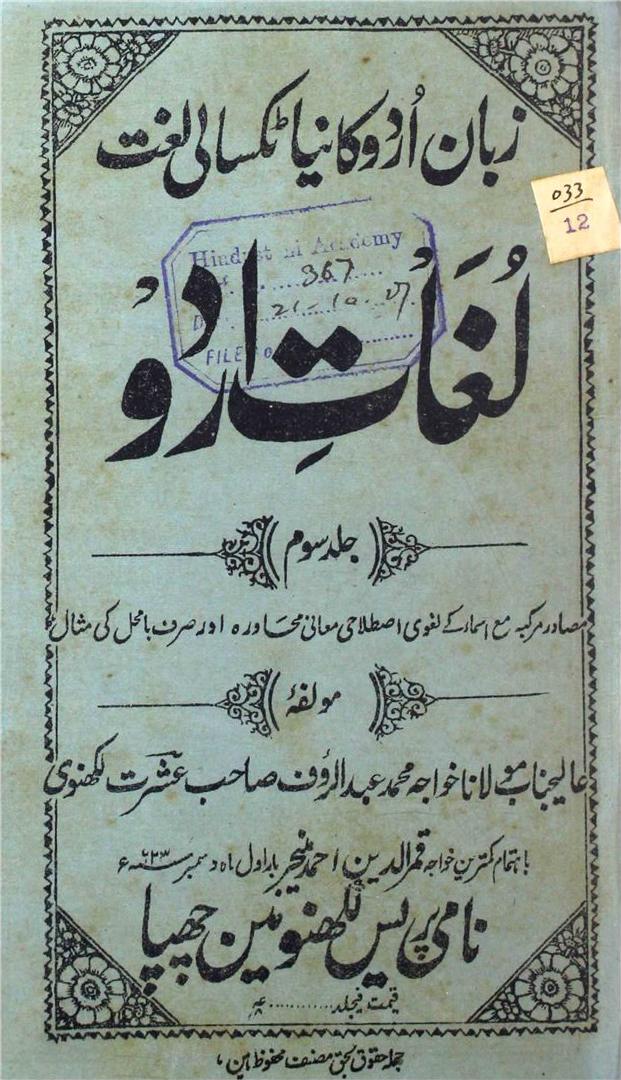 زبان اُردو کا نیا ٹکسالی لغت
033
12
Hindustani Academy
367
21-10-
FILE
لُغَاتِ اردُو
جلد سوم
مصادر مرکبہ مع اسماء کے لغوی اصطلاحی معانی محاورہ اور صرف بامحل کی مثال
مولفۂ
عالیجناب مولانا خواجہ محمد عبدالرؤف صاحب عشرت لکھنوی
باہتمام کمترین خواجہ قمرالدین احمد منیجر بار اول ماہ دسمبر
نامی پریس لکھنؤ مین چھپا
قیمت فیجلد ............
جملہ حقوق بحق مصنف محفوظ ہین